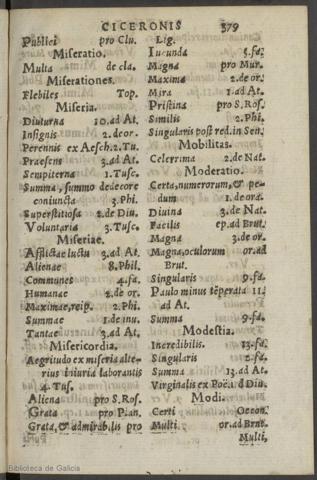 CICERONIS 379
Publici pro Clu.
Miseratio.
Multa de cla.
Miserationes.
Flebiles Top.
Miseria.
Diuturna 10. ad At.
Insignis 2. de or.
Perennis ex Aesch. 2. Tu.
Praesens 3. ad At.
Sempiterna 1. Tusc.
Summa, summo dedecore
coniuncta 3. Phi.
Superstitiosa 2. de Diu.
Voluntaria 3. Tusc.
Miseriae.
Afflictae luctu 3. ad At.
Alienae 8. Phil.
Communes 4. fa.
Humanae 2. de or.
Maximae, reip. 2. Phi.
Summae 1. de inu.
Tantae 3. ad At.
Misericordia.
Aegritudo ex miseria alte-
rius iniuria laborantis
4. Tus.
Aliena pro S. Ros.
Grata pro Plan.
Grata, & admirabilis pro
Lig.
Iucunda 5. fa.
Magna pro Mur.
Maxima 2. de or.
Mira 1. ad At.
Pristina pro S. Ros.
Similis 2. Phi.
Singularis post red. in Sen.
Mobilitas.
Celerrima 2. de Nat.
Moderatio.
Certa, numerorum, & pe-
dum 1. de ora.
Diuina 3. de Nat.
Facilis ep. ad Brut.
Magna 3. de or.
Magna, oculorum or. ad
Brut.
Singularis 9. fa.
Paulo minus tēperata 11.
ad At.
Summa 9. fa.
Modestia.
Incredibilis. 13. fa.
Singularis 2. fa.
Summa 13. ad At.
Virginalis ex Poë. 1. d Diu.
Modi.
Certi Oecon.
Multi or. ad Brut.
Multi,
Biblioteca de Galicia